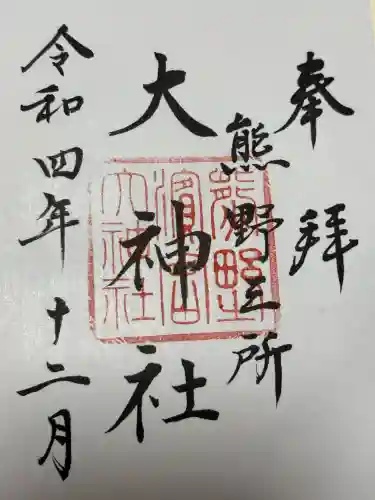 奉拝
熊野三所
大神社
令和四年十二月